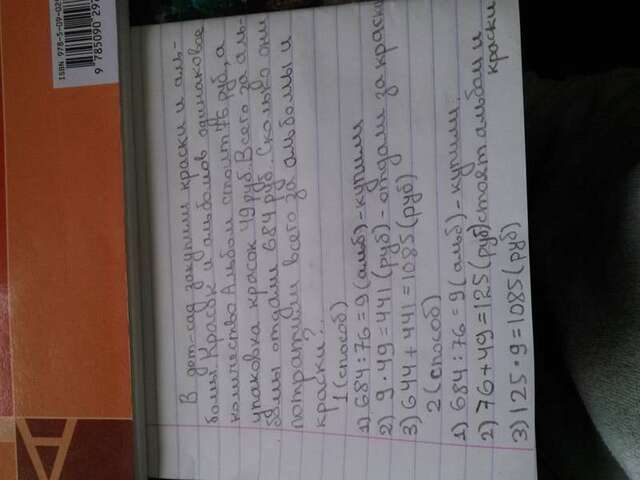 В дет-сад закупили краски и аль-
бомы. Красок и альбомов одинаковое
количество. Альбом стоит 76 руб, а
упаковка красок 49 руб. Всего за аль-
бомы отдали 684 руб. Сколько они
потратили всего за альбомы и
краски?
1 (способ)
1) 684 : 76 = 9 (альб) - купили
2) 9 · 49 = 441 (руб) - отдали за краски
3) 644 + 441 = 1085 (руб)
2 (способ)
1) 684 : 76 = 9 (альб) - купили.
2) 76 + 49 = 125 (руб) стоят альбом и
краски
3) 125 · 9 = 1085 (руб)
A